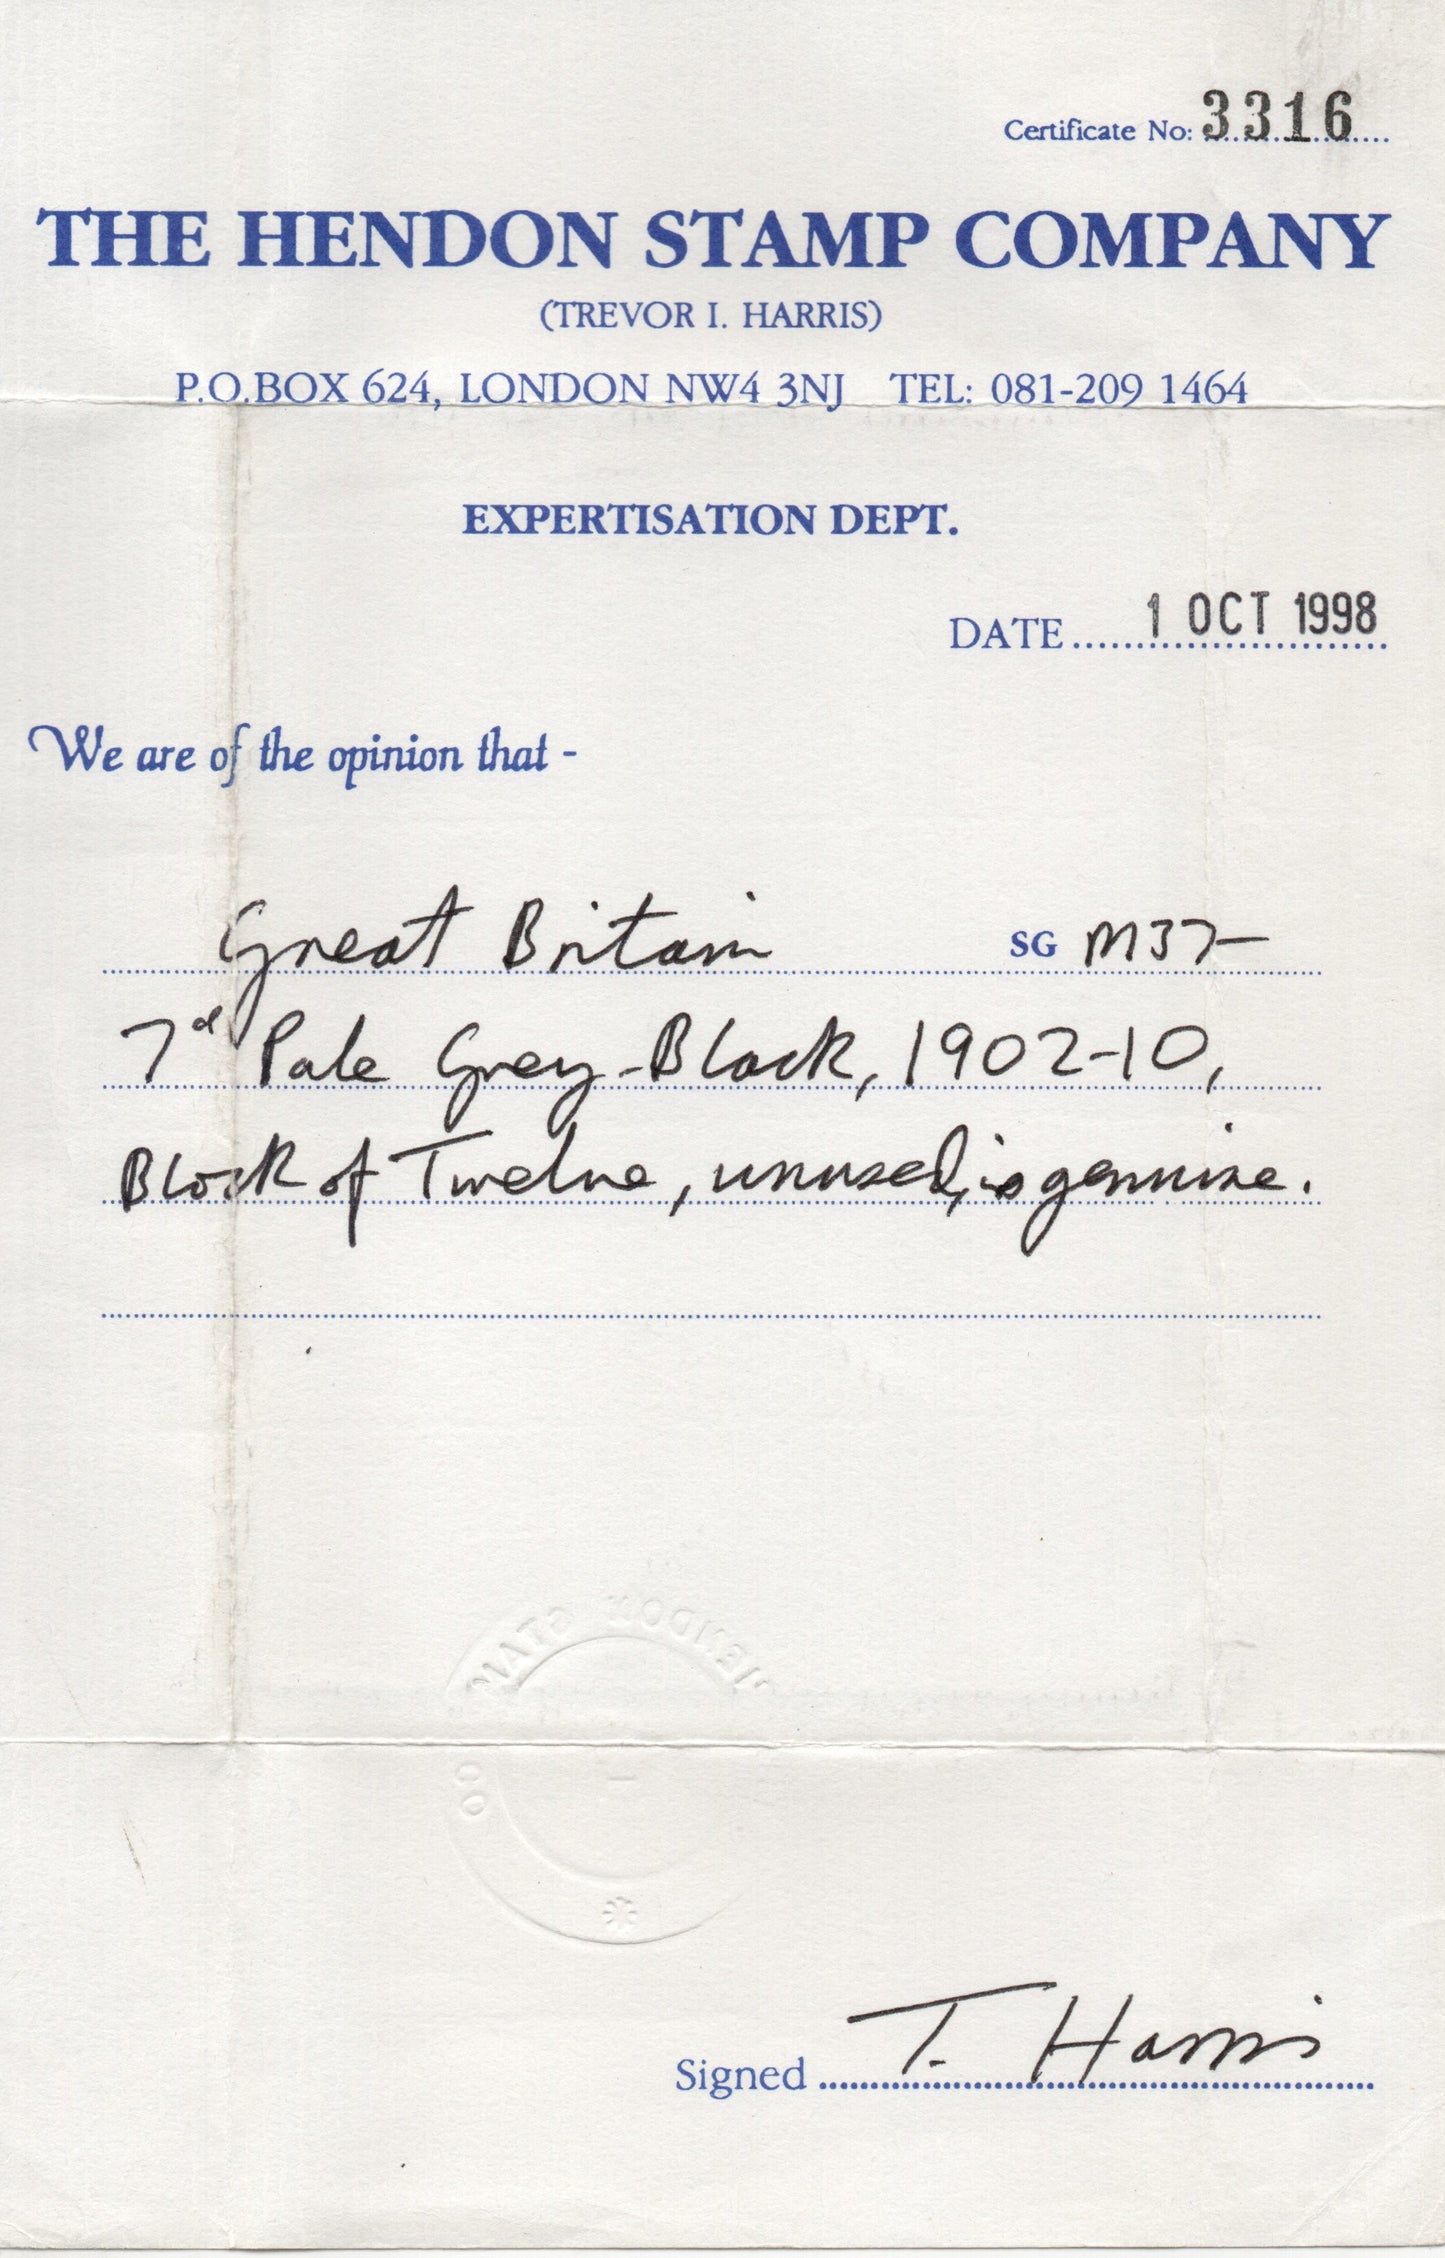 Certificate No: 3316
THE HENDON STAMP COMPANY
(TREVOR I. HARRIS)
P.O.BOX 624, LONDON NW4 3NJ TEL: 081-209 1464
EXPERTISATION DEPT.
DATE 1 OCT 1998
We are of the opinion that -
Great Britain SG M37-
7d Pale Grey-Black, 1902-10,
Block of Twelve, unused, is genuine.
HENDON STAMP
CO
Signed T. Harris